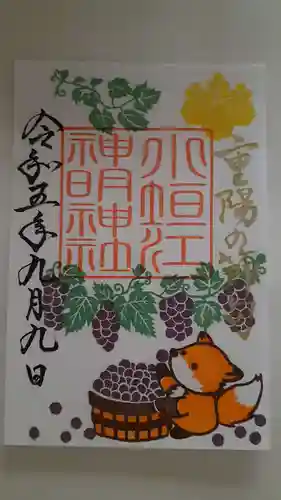 重陽の
小垣江
神明神社
令和五年九月九日